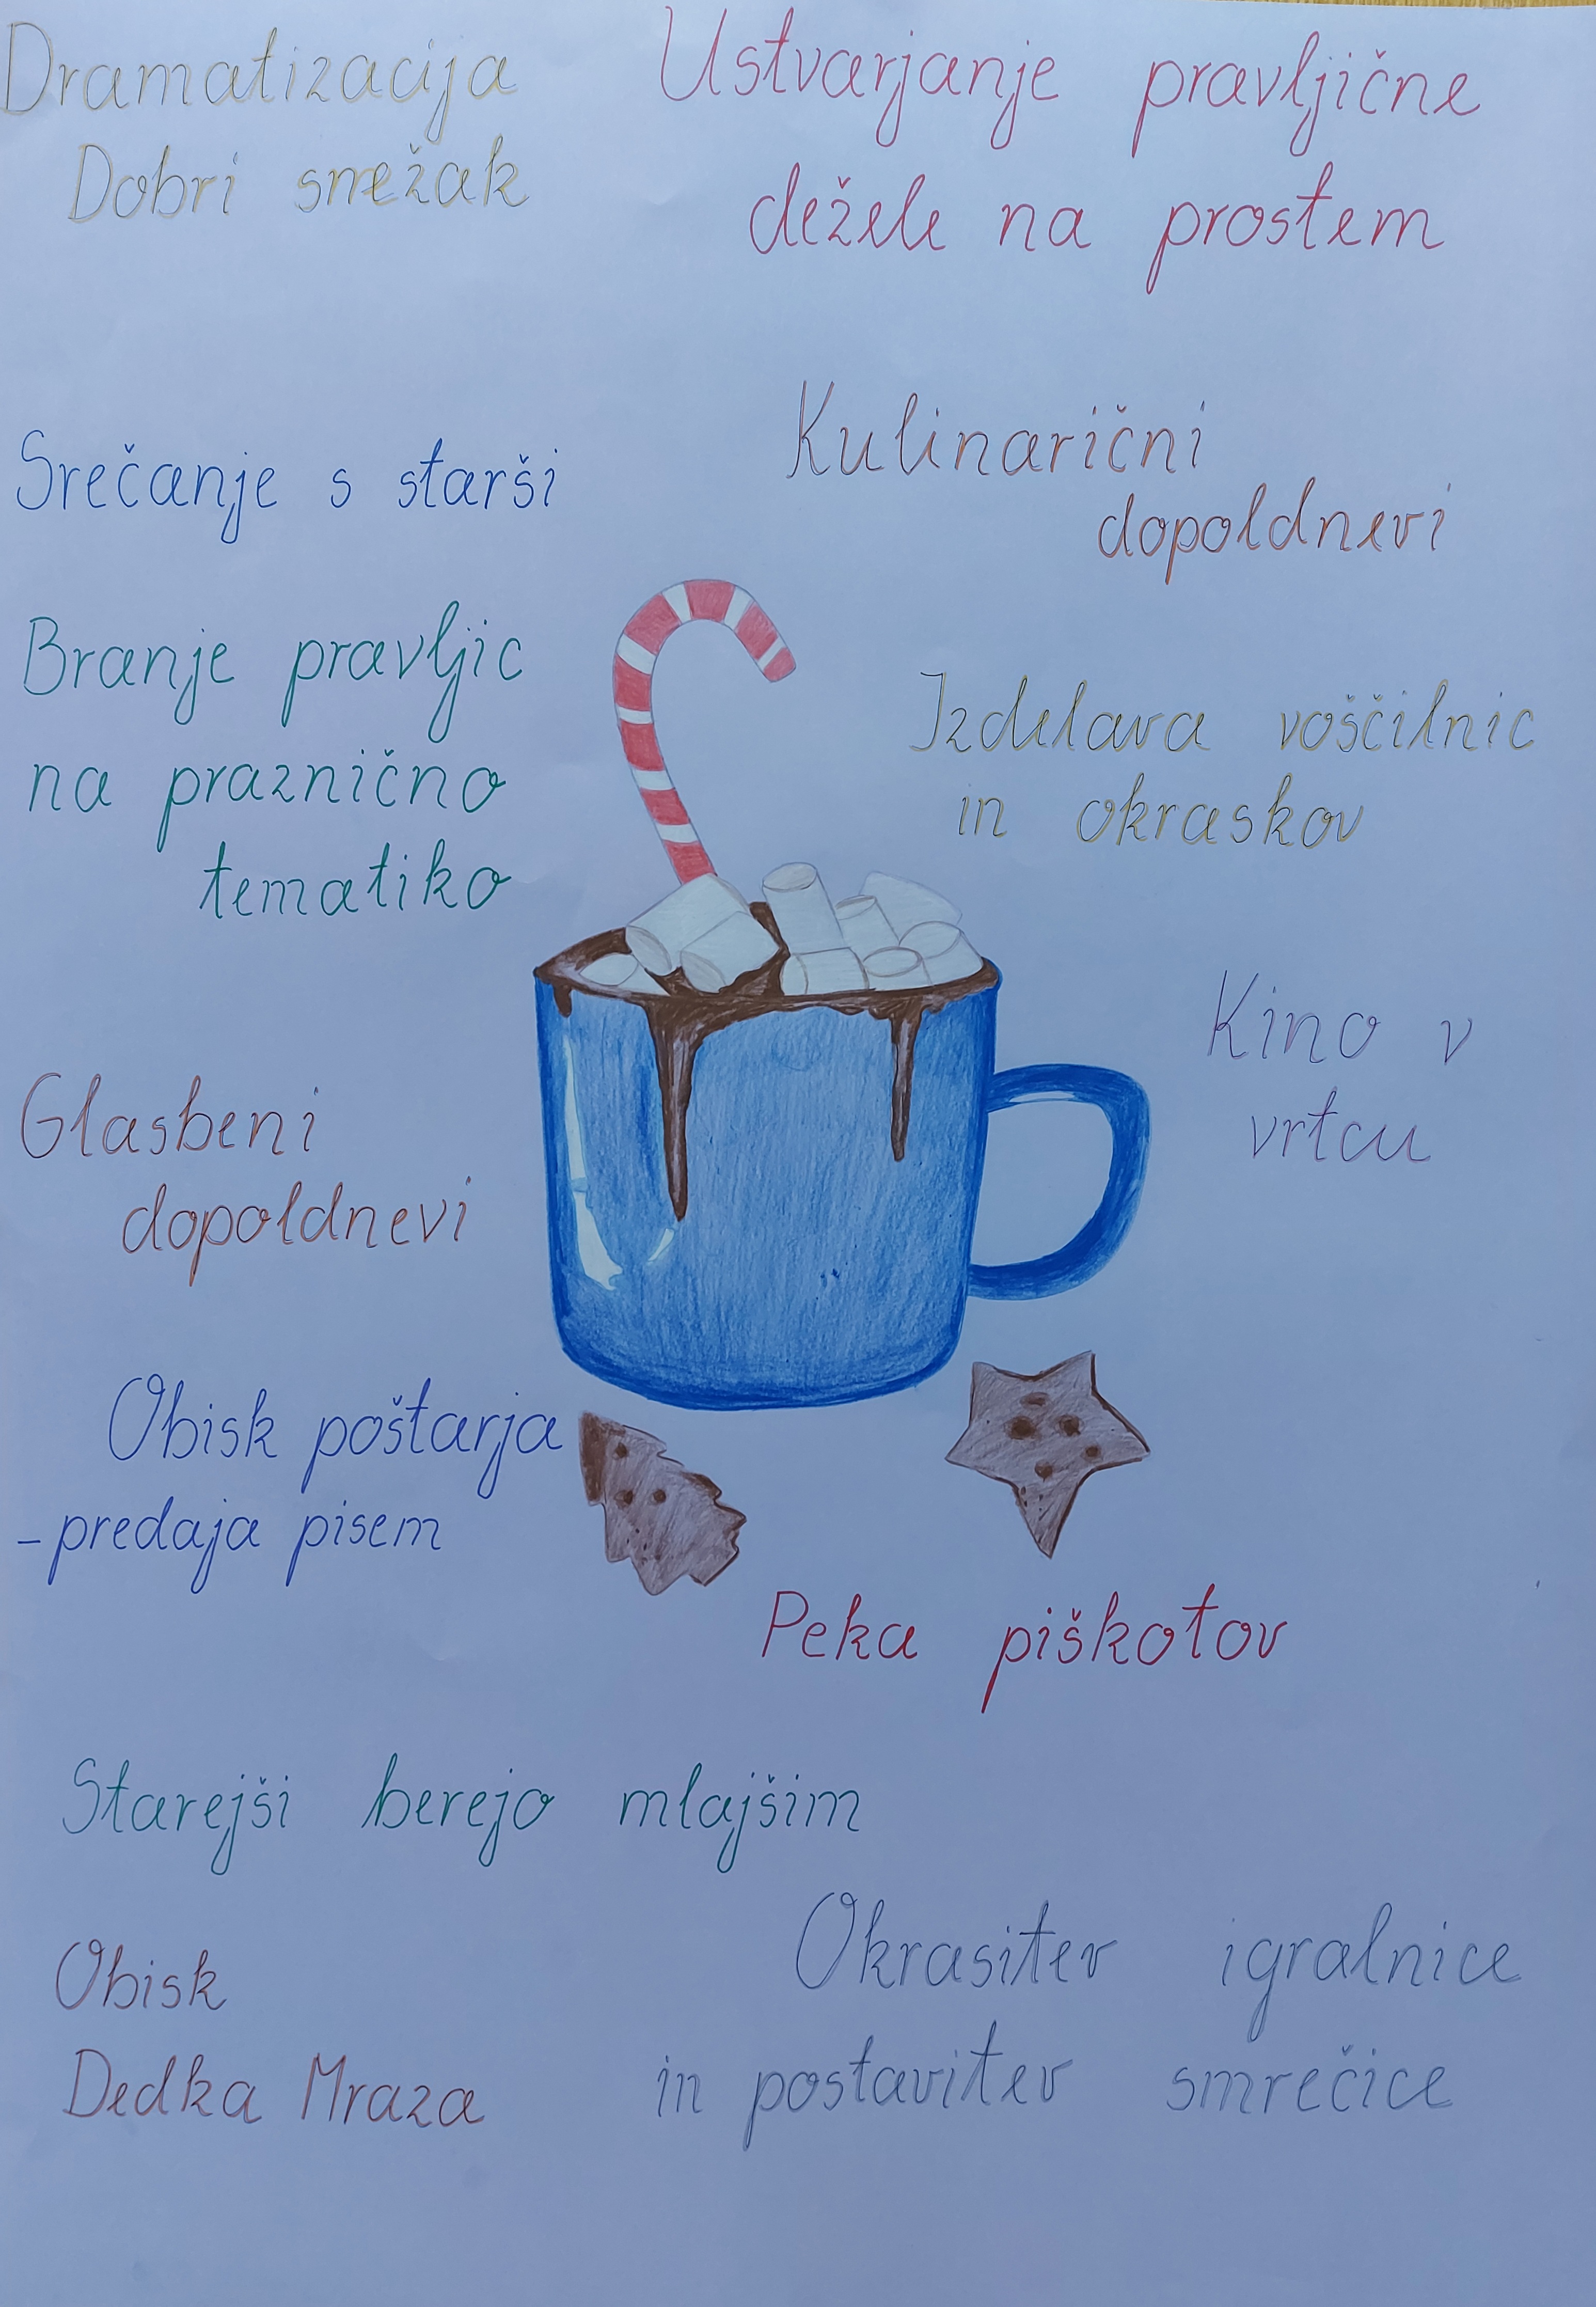 Dramatizacija
Dobri snežak
Ustvarjanje pravljične
dežele na prostem
Srečanje s starši
Kulinarični
dopoldnevi
Branje pravljic
na praznično
tematiko
Izdelava voščilnic
in okraskov
Kino v
vrtcu
Glasbeni
dopoldnevi
Obisk poštarja
- predaja pisem
Peka piškotov
Starejši berejo mlajšim
Obisk
Dedka Mraza
Okrasitev igralnice
in postavitev smrečice